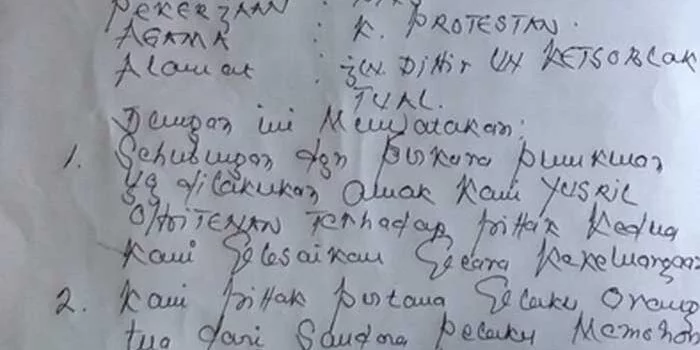 PEKERJAAN :
AGAMA : K. PROTESTAN.
Alamat : JLN. DIHIR UN KETSOBLAK
TUAL.
Dengan ini Menyatakan:
1. Sehubungan dgn perkara pemukulan
yg dilakukan anak kami YUSRIL
OHOITENAN terhadap pihak kedua
kami Selesaikan Secara kekeluargaan
2. kami pihak pertama Selaku Orang
tua dari Saudara pelaku Memohon